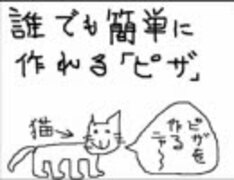 誰でも簡単に
作れる「ピザ」
猫→
ピザを
作る
ニャ〜